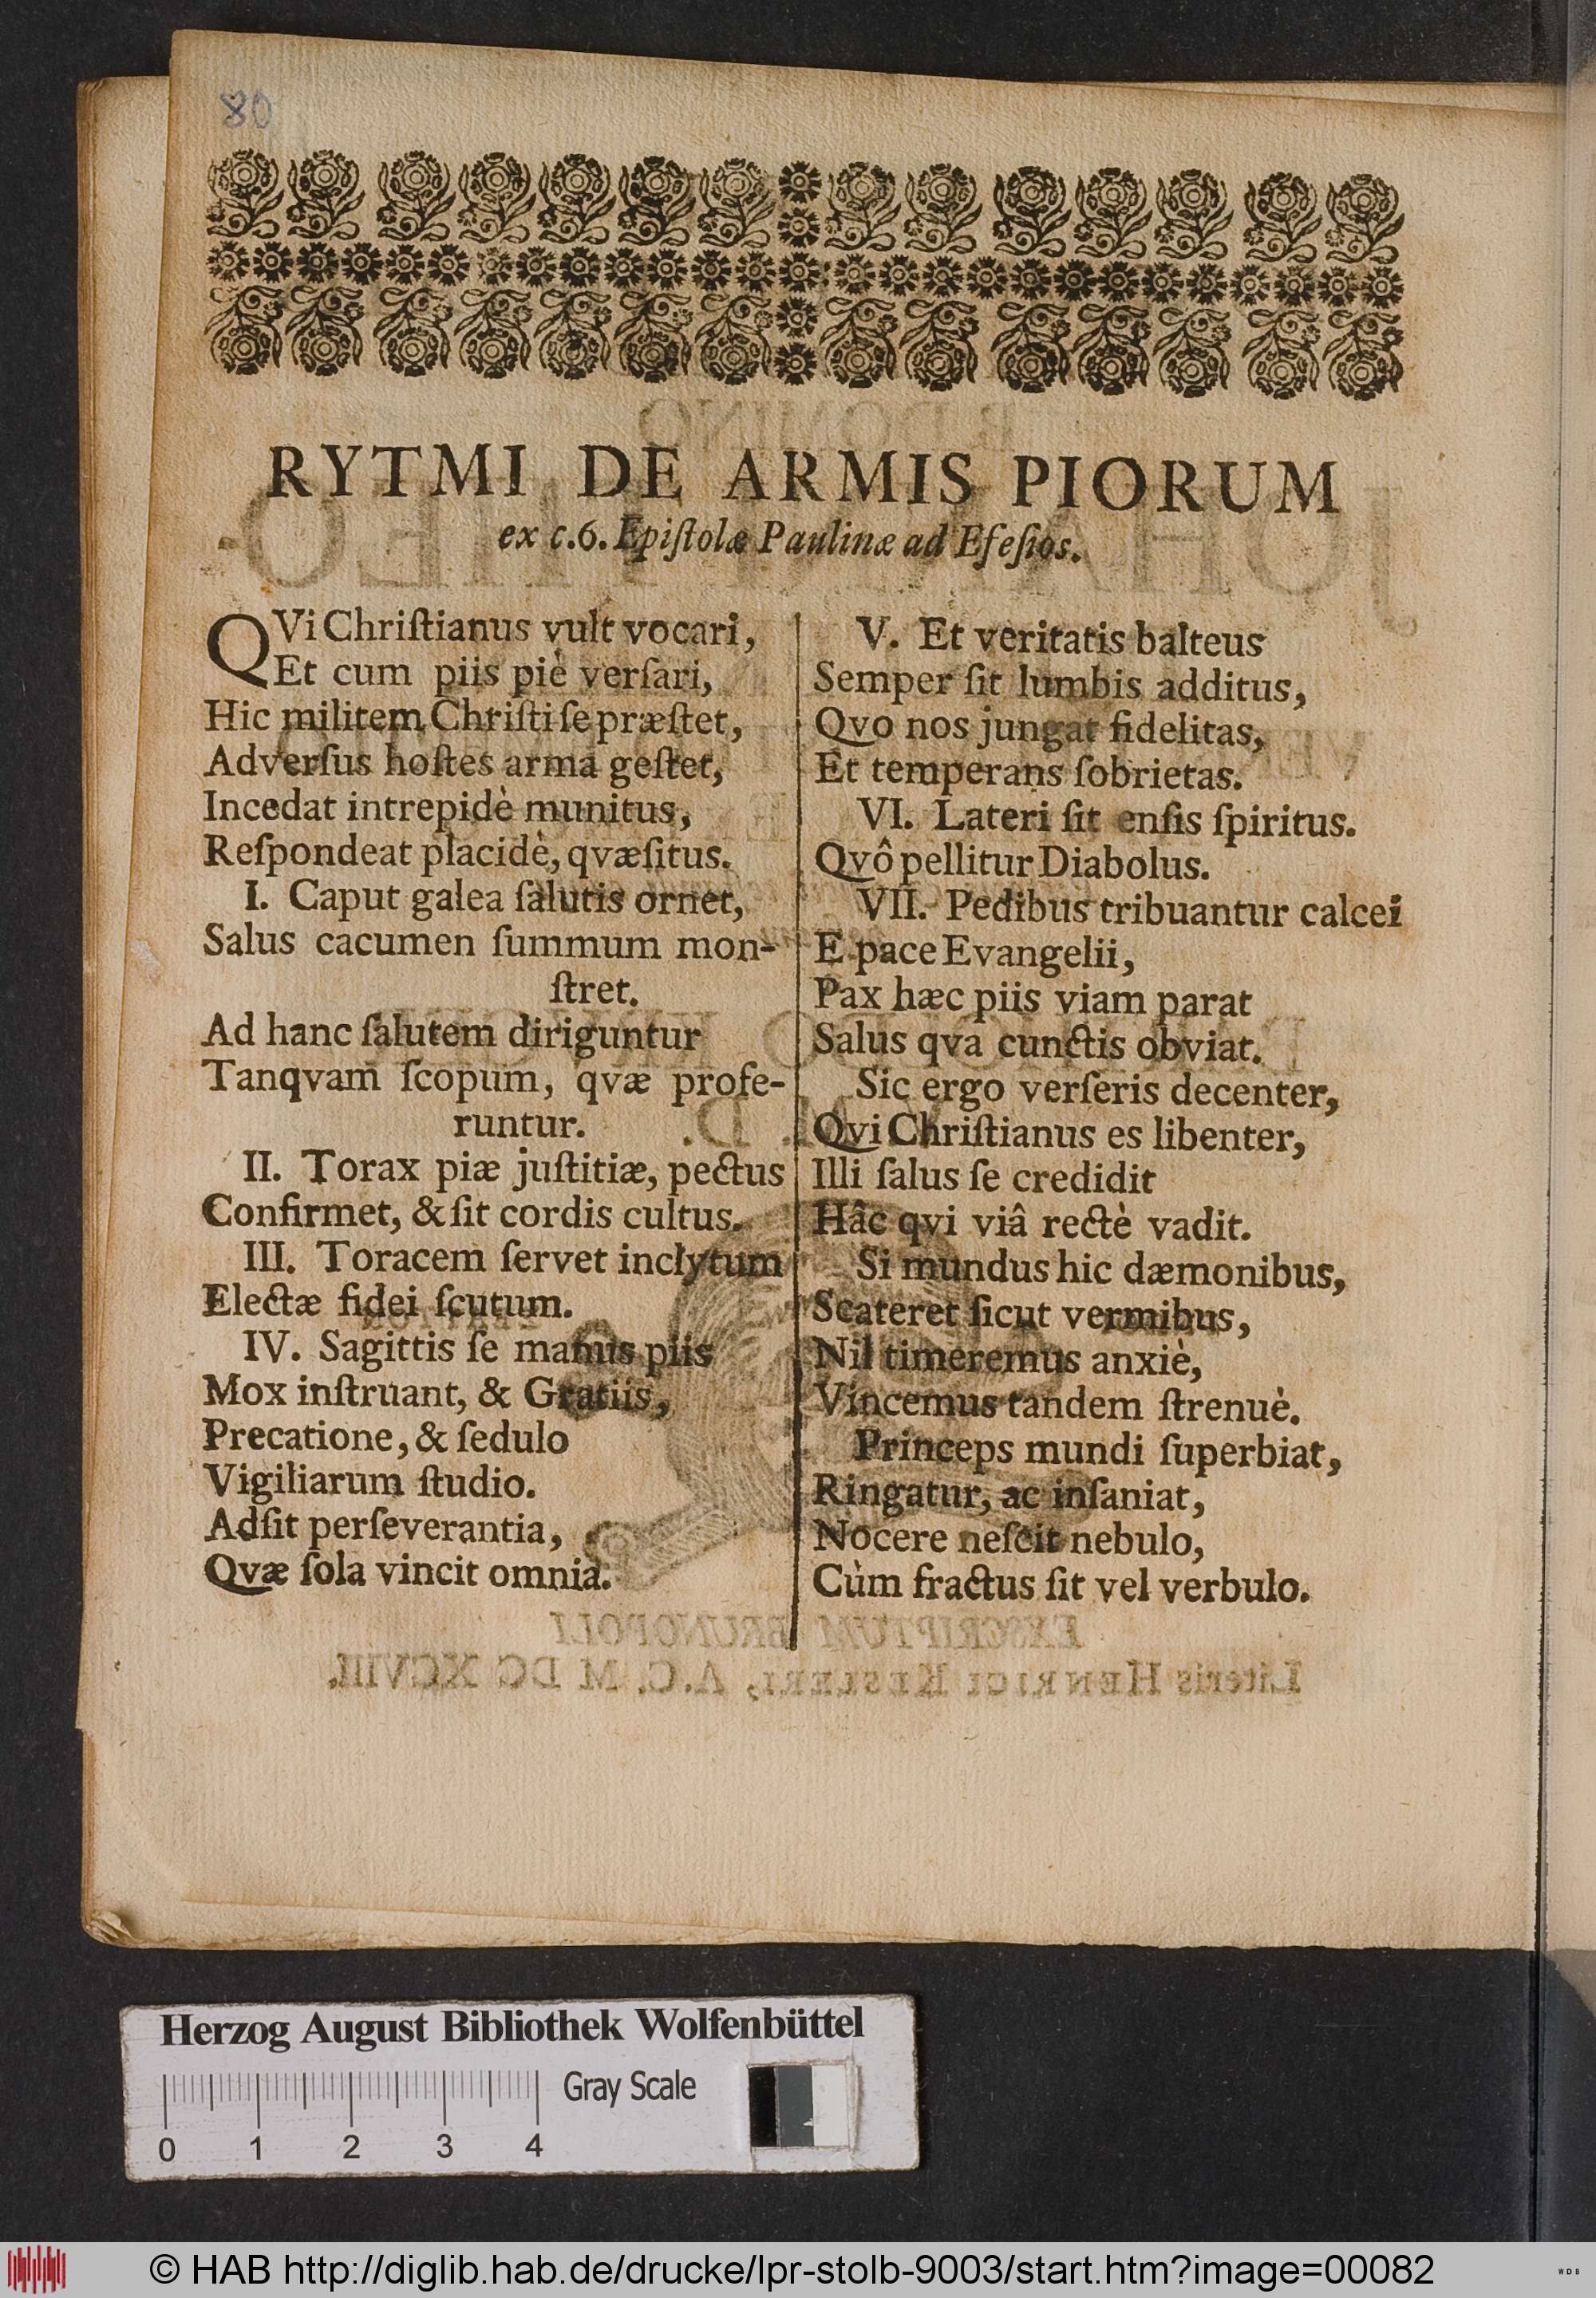 80
RYTMI DE ARMIS PIORUM
ex c.6. Epiſtolæ Paulinæ ad Efeſios.
QVi Chriſtianus vult vocari,
Et cum piis piè verſari,
Hic militem Chriſti ſe præſtet,
Adverſus hoſtes arma geſtet,
Incedat intrepidè munitus,
Reſpondeat placidè, qvæſitus.
I. Caput galea ſalutis ornet,
Salus cacumen ſummum mon-
ſtret.
Ad hanc ſalutem diriguntur
Tanqvam ſcopum, qvæ profe-
runtur.
II. Torax piæ juſtitiæ, pectus
Confirmet, & ſit cordis cultus.
III. Toracem ſervet inclytum
Electæ fidei ſcutum.
IV. Sagittis ſe manus piis
Mox inſtruant, & Gratiis,
Precatione, & ſedulo
Vigiliarum ſtudio.
Adſit perſeverantia,
Qvæ ſola vincit omnia.
V. Et veritatis balteus
Semper ſit lumbis additus,
Qvo nos jungat fidelitas,
Et temperans ſobrietas.
VI. Lateri ſit enſis ſpiritus.
Qvô pellitur Diabolus.
VII. Pedibus tribuantur calcei
E pace Evangelii,
Pax hæc piis viam parat
Salus qva cunctis obviat.
Sic ergo verſeris decenter,
Qvi Chriſtianus es libenter,
Illi ſalus ſe credidit
Hâc qvi viâ rectè vadit.
Si mundus hic dæmonibus,
Scateret ſicut vermibus,
Nil timeremus anxiè,
Vincemus tandem ſtrenuè.
Princeps mundi ſuperbiat,
Ringatur, ac inſaniat,
Nocere neſcit nebulo,
Cùm fractus ſit vel verbulo.
Herzog August Bibliothek Wolfenbüttel
Gray Scale
0 1 2 3 4
© HAB http://diglib.hab.de/drucke/lpr-stolb-9003/start.htm?image=00082
WDB